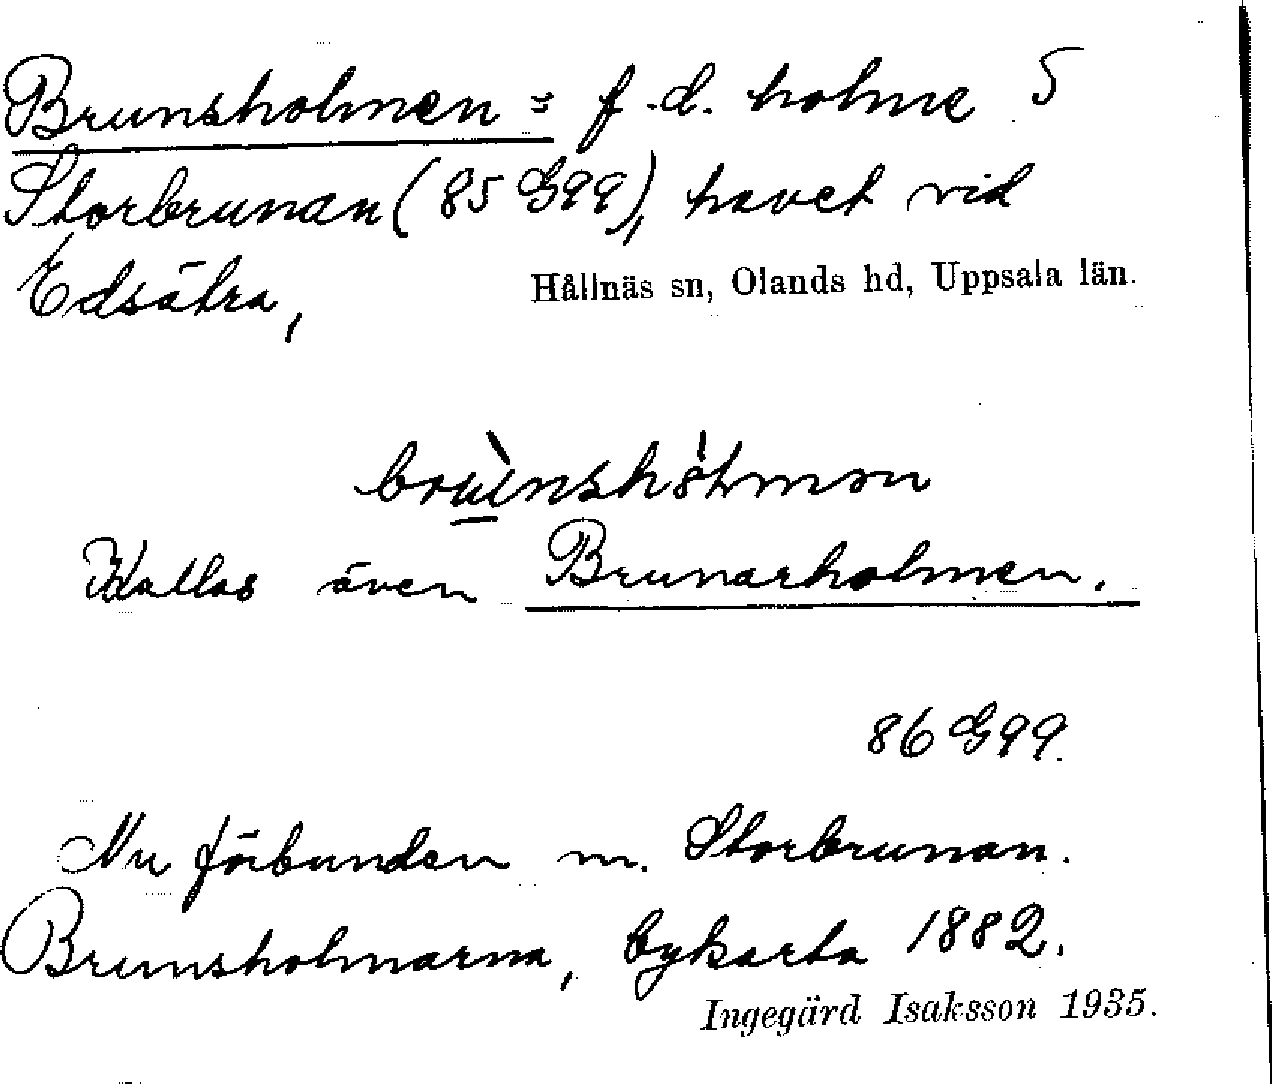 Brunsholmen = f.d. holme S
Storbrunan (85 G99), havet vid
Edsätra,
Hållnäs sn, Olands hd, Uppsala län.
Kallas även Brunarholmen.
86 G99.
Nu förbunden m. Storbrunan.
Brunsholmarna, bykarta 1882.
Ingegärd Isaksson 1935.